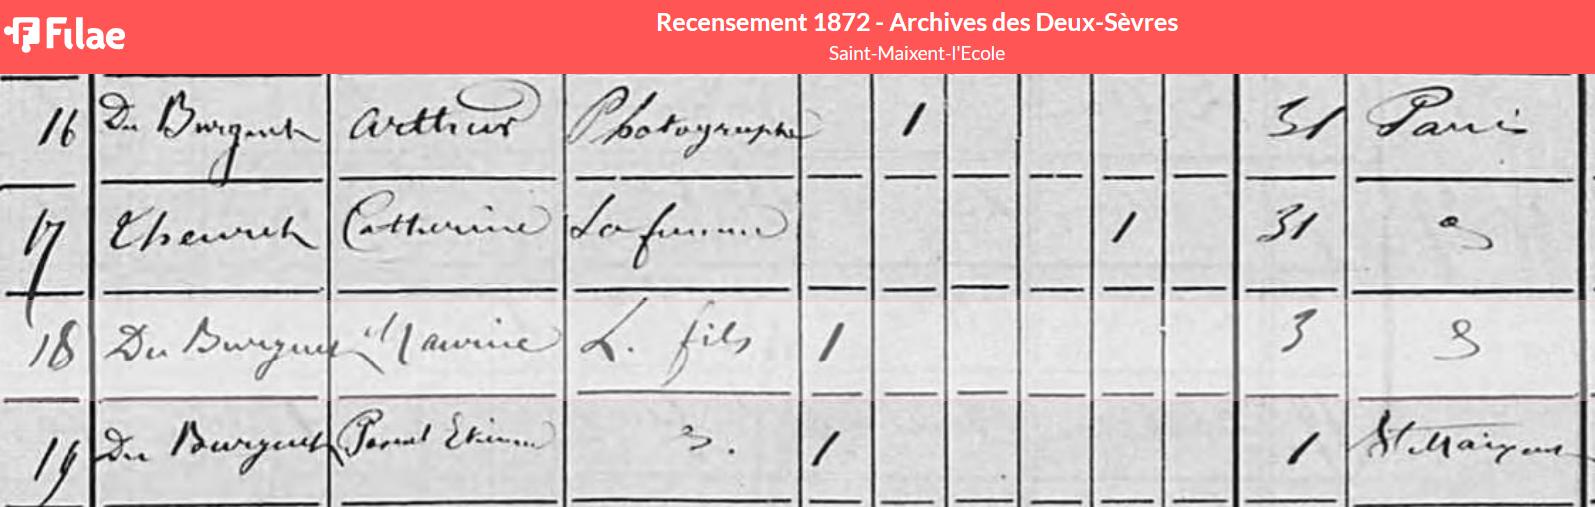 Filae
Recensement 1872 - Archives des Deux-Sèvres
Saint-Maixent-l'Ecole
16 Du Burguet Arthur Photographe 1 31 Paris
17 Catherine La femme 1 31
18 Du Burguet Maurice L. fils 1 3
19 Du Burguet Etienne 1 1 St Maixent